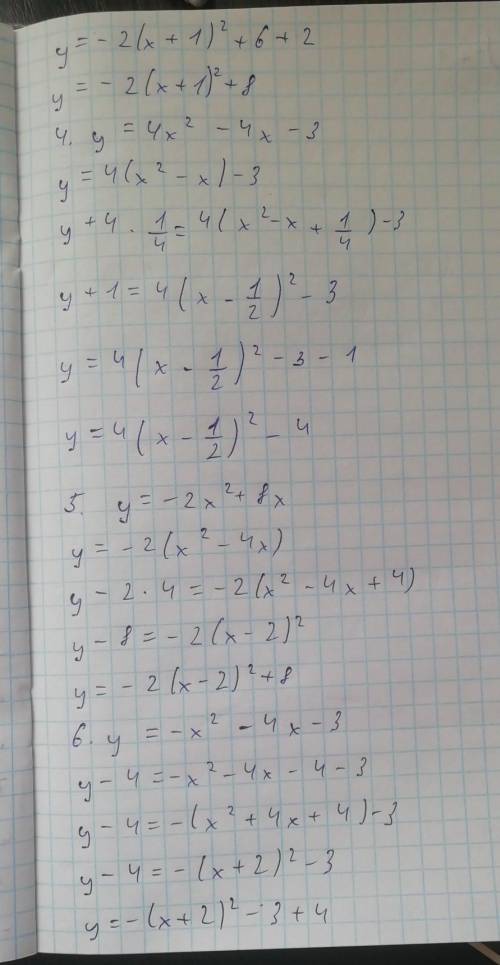 y = - 2(x + 1)² + 6 + 2
y = - 2(x+1)² + 8
4. y = 4x² - 4x - 3
y = 4(x² - x) - 3
y + 4 · 1/4 = 4(x² - x + 1/4) - 3
y + 1 = 4(x - 1/2)² - 3
y = 4(x - 1/2)² - 3 - 1
y = 4(x - 1/2)² - 4
5. y = -2x² + 8x
y = -2(x² - 4x)
y - 2 · 4 = -2(x² - 4x + 4)
y - 8 = -2(x - 2)²
y = -2(x-2)² + 8
6. y = -x² - 4x - 3
y - 4 = -x² - 4x - 4 - 3
y - 4 = -(x² + 4x + 4) - 3
y - 4 = -(x+2)² - 3
y = -(x+2)² - 3 + 4